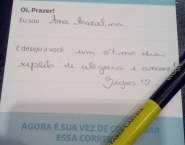 Oi, Prazer!
Eu sou Ana Carolina
E desejo a você um ótimo dia
repleto de alegria e amor!
Beijos ♡
AGORA É SUA VEZ DE
ESSA